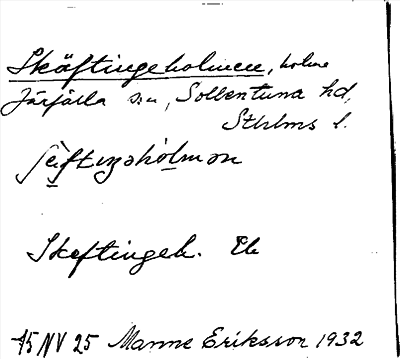 Skäftingeholmen, holme
Järfälla sn, Sollentuna hd,
Sthlms l.
ʃèftɩŋəhòlmən
Skeftingeh. Ek
45 NV 25 Manne Eriksson 1932